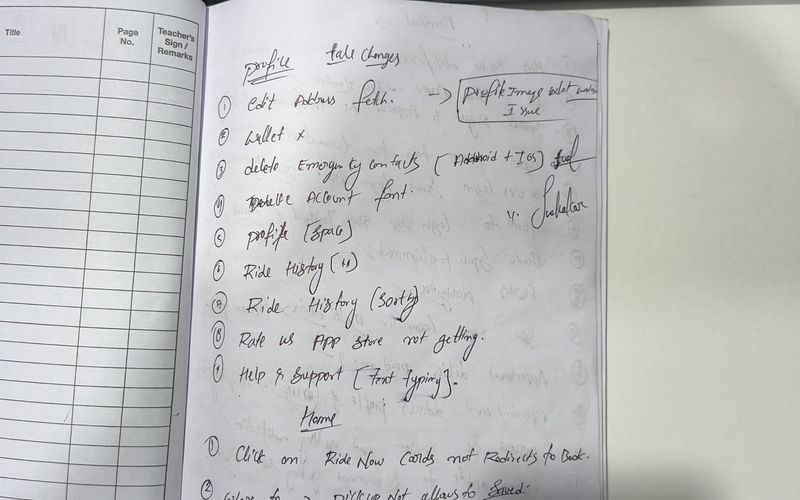 Title
Page No.
Teacher's Sign / Remarks
Profile Changes
① Edit Address fetch. → Profile Image Issue
② Wallet x
③ delete Emergency contacts [Android + IOS]
④ Delete Account font.
⑤ profile [Space]
⑥ Ride History ( )
⑦ Ride History (Sort by)
⑧ Rate us App Store not getting.
⑨ Help & Support [Text Typing].
Home
① Click on Ride Now Cards not Redirects to Book.
② Where to → pickup Not allows to Saved.